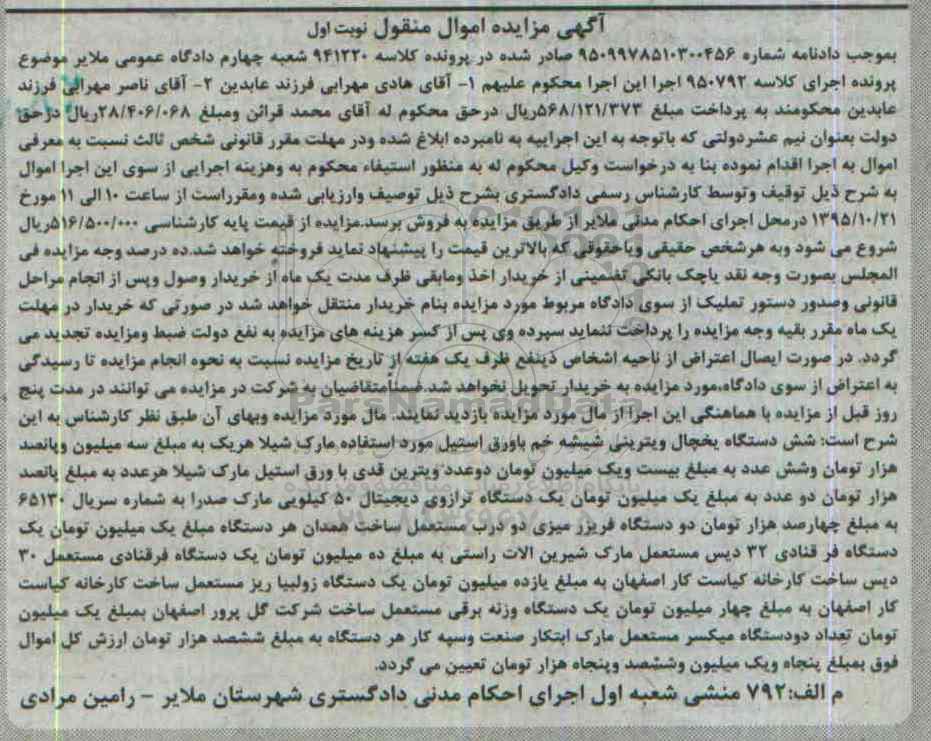 آگهی مزایده اموال منقول نوبت اول
بموجب دادنامه شماره ۹۵۰۹۹۷۸۵۱۰۳۰۰۴۵۶ صادر شده در پرونده کلاسه ۹۴۱۲۲۰ شعبه چهارم دادگاه عمومی ملایر موضوع
پرونده اجرای کلاسه ۹۵۰۷۹۲ اجرا این اجرا محکوم علیهم ۱- آقای هادی مهرابی فرزند عابدین ۲- آقای ناصر مهرابی فرزند
عابدین محکومند به پرداخت مبلغ ۵۶۸/۱۲۱/۳۷۳ریال درحق محکوم له آقای محمد قرائن ومبلغ ۲۸/۴۰۶/۰۶۸ریال درحق
دولت بعنوان نیم عشردولتی که باتوجه به این اجراییه به نامبرده ابلاغ شده ودر مهلت مقرر قانونی شخص ثالث نسبت به معرفی
اموال به اجرا اقدام نموده بنا به درخواست وکیل محکوم له به منظور استیفاء محکوم به وهزینه اجرایی از سوی این اجرا اموال
به شرح ذیل توقیف وتوسط کارشناس رسمی دادگستری بشرح ذیل توصیف وارزیابی شده ومقرراست از ساعت ۱۰ الی ۱۱ مورخ
۱۳۹۵/۱۰/۲۱ درمحل اجرای احکام مدنی ملایر از طریق مزایده به فروش برسد.مزایده از قیمت پایه کارشناسی ۵۱۶/۵۰۰/۰۰۰ریال
شروع می شود وبه هرشخص حقیقی ویاحقوقی که بالاترین قیمت را پیشنهاد نماید فروخته خواهد شد.ده درصد وجه مزایده فی
المجلس بصورت وجه نقد یاچک بانکی تضمینی از خریدار اخذ ومابقی ظرف مدت یک ماه از خریدار وصول وپس از انجام مراحل
قانونی وصدور دستور تملیک از سوی دادگاه مربوط مورد مزایده بنام خریدار منتقل خواهد شد در صورتی که خریدار در مهلت
یک ماه مقرر بقیه وجه مزایده را پرداخت ننماید سپرده وی پس از کسر هزینه های مزایده به نفع دولت ضبط ومزایده تجدید می
گردد. در صورت ایصال اعتراض از ناحیه اشخاص ذینفع ظرف یک هفته از تاریخ مزایده نسبت به نحوه انجام مزایده تا رسیدگی
به اعتراض از سوی دادگاه،مورد مزایده به خریدار تحویل نخواهد شد.ضمنامتقاضیان به شرکت در مزایده می توانند در مدت پنج
روز قبل از مزایده با هماهنگی این اجرا از مال مورد مزایده بازدید نمایند. مال مورد مزایده وبهای آن طبق نظر کارشناس به این
شرح است: شش دستگاه یخچال ویترینی شیشه خم باورق استیل مورد استفاده مارک شیلا هریک به مبلغ سه میلیون وپانصد
هزار تومان وشش عدد به مبلغ بیست ویک میلیون تومان دوعدد ویترین قدی با ورق استیل مارک شیلا هرعدد به مبلغ پانصد
هزار تومان دو عدد به مبلغ یک میلیون تومان یک دستگاه ترازوی دیجیتال ۵۰ کیلویی مارک صدرا به شماره سریال ۶۵۱۳۰
به مبلغ چهارصد هزار تومان دو دستگاه فریزر میزی دو درب مستعمل ساخت همدان هر دستگاه مبلغ یک میلیون تومان یک
دستگاه فر قنادی ۳۲ دیس مستعمل مارک شیرین الات راستی به مبلغ ده میلیون تومان یک دستگاه فرقنادی مستعمل ۳۰
دیس ساخت کارخانه کیاست کار اصفهان به مبلغ یازده میلیون تومان یک دستگاه زولبیا ریز مستعمل ساخت کارخانه کیاست
کار اصفهان به مبلغ چهار میلیون تومان یک دستگاه وزنه برقی مستعمل ساخت شرکت گل پرور اصفهان بمبلغ یک میلیون
تومان تعداد دودستگاه میکسر مستعمل مارک ابتکار صنعت وسپه کار هر دستگاه به مبلغ ششصد هزار تومان ارزش کل اموال
فوق بمبلغ پنجاه ویک میلیون وششصد وپنجاه هزار تومان تعیین می گردد.
م الف:۷۹۲ منشی شعبه اول اجرای احکام مدنی دادگستری شهرستان ملایر - رامین مرادی
ParsNamadData